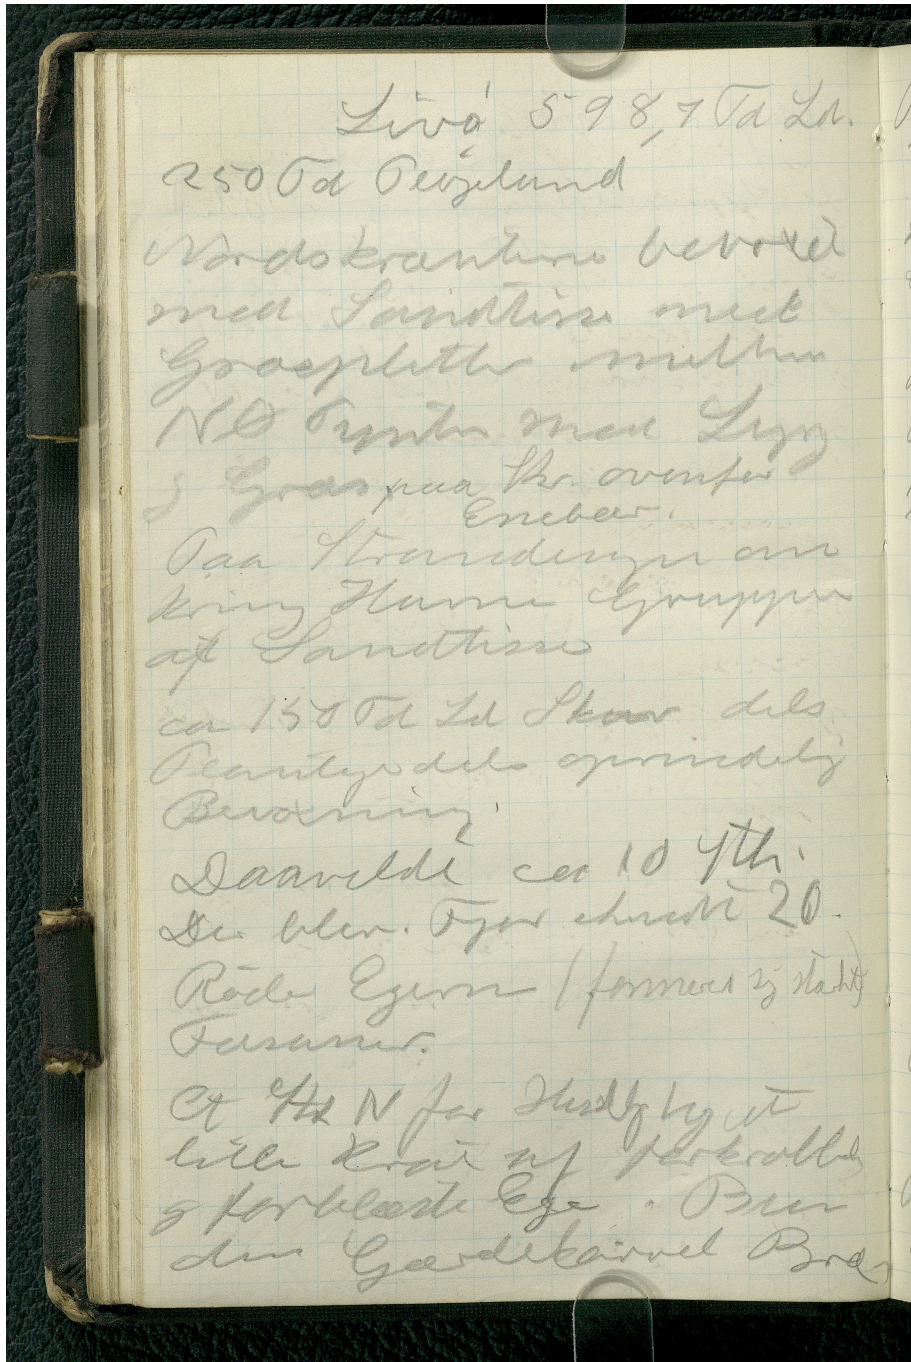 Livø 598,7 Td Ld.
250 Td Pløjeland
Nordskrænterne bevoxet
med Sandtisse med
Græspletter mellem
NØ Pynten med Lyng
og Græs paa Skr. ovenfor
Enebær.
Paa Strandengen om
kring Havnen Grupper
af Sandtisse
ca 150 Td Ld Skov dels
Plantage dels oprindelig
Bevoxning.
Daavildt ca 10 Stk.
Der blev. Fjor skudt 20.
Røde Egern (formerer sig stærkt)
Fasaner.
Et Stk N for
lille Krat af forkrøblede
og forblæste Ege. Bren
den Gærdekørvel